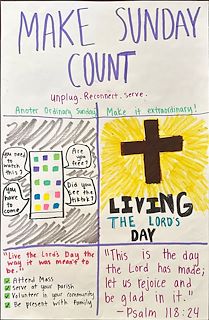 MAKE SUNDAY
COUNT
Unplug. Reconnect. Serve.
Anoter Ordinary Sunday
Make it extraordinary!
you need to
watch
this!
Are
you
free?
you
have to
come
Did you
see the
tiktok?
LIVING
THE LORD'S
DAY
"Live the Lord's Day the
way it was meant to
be."
Attend Mass
Serve at your parish
Volunteer in your community
Be present with family
"This is the day
the Lord has made;
let us rejoice and
be glad in it."
-Psalm 118:24